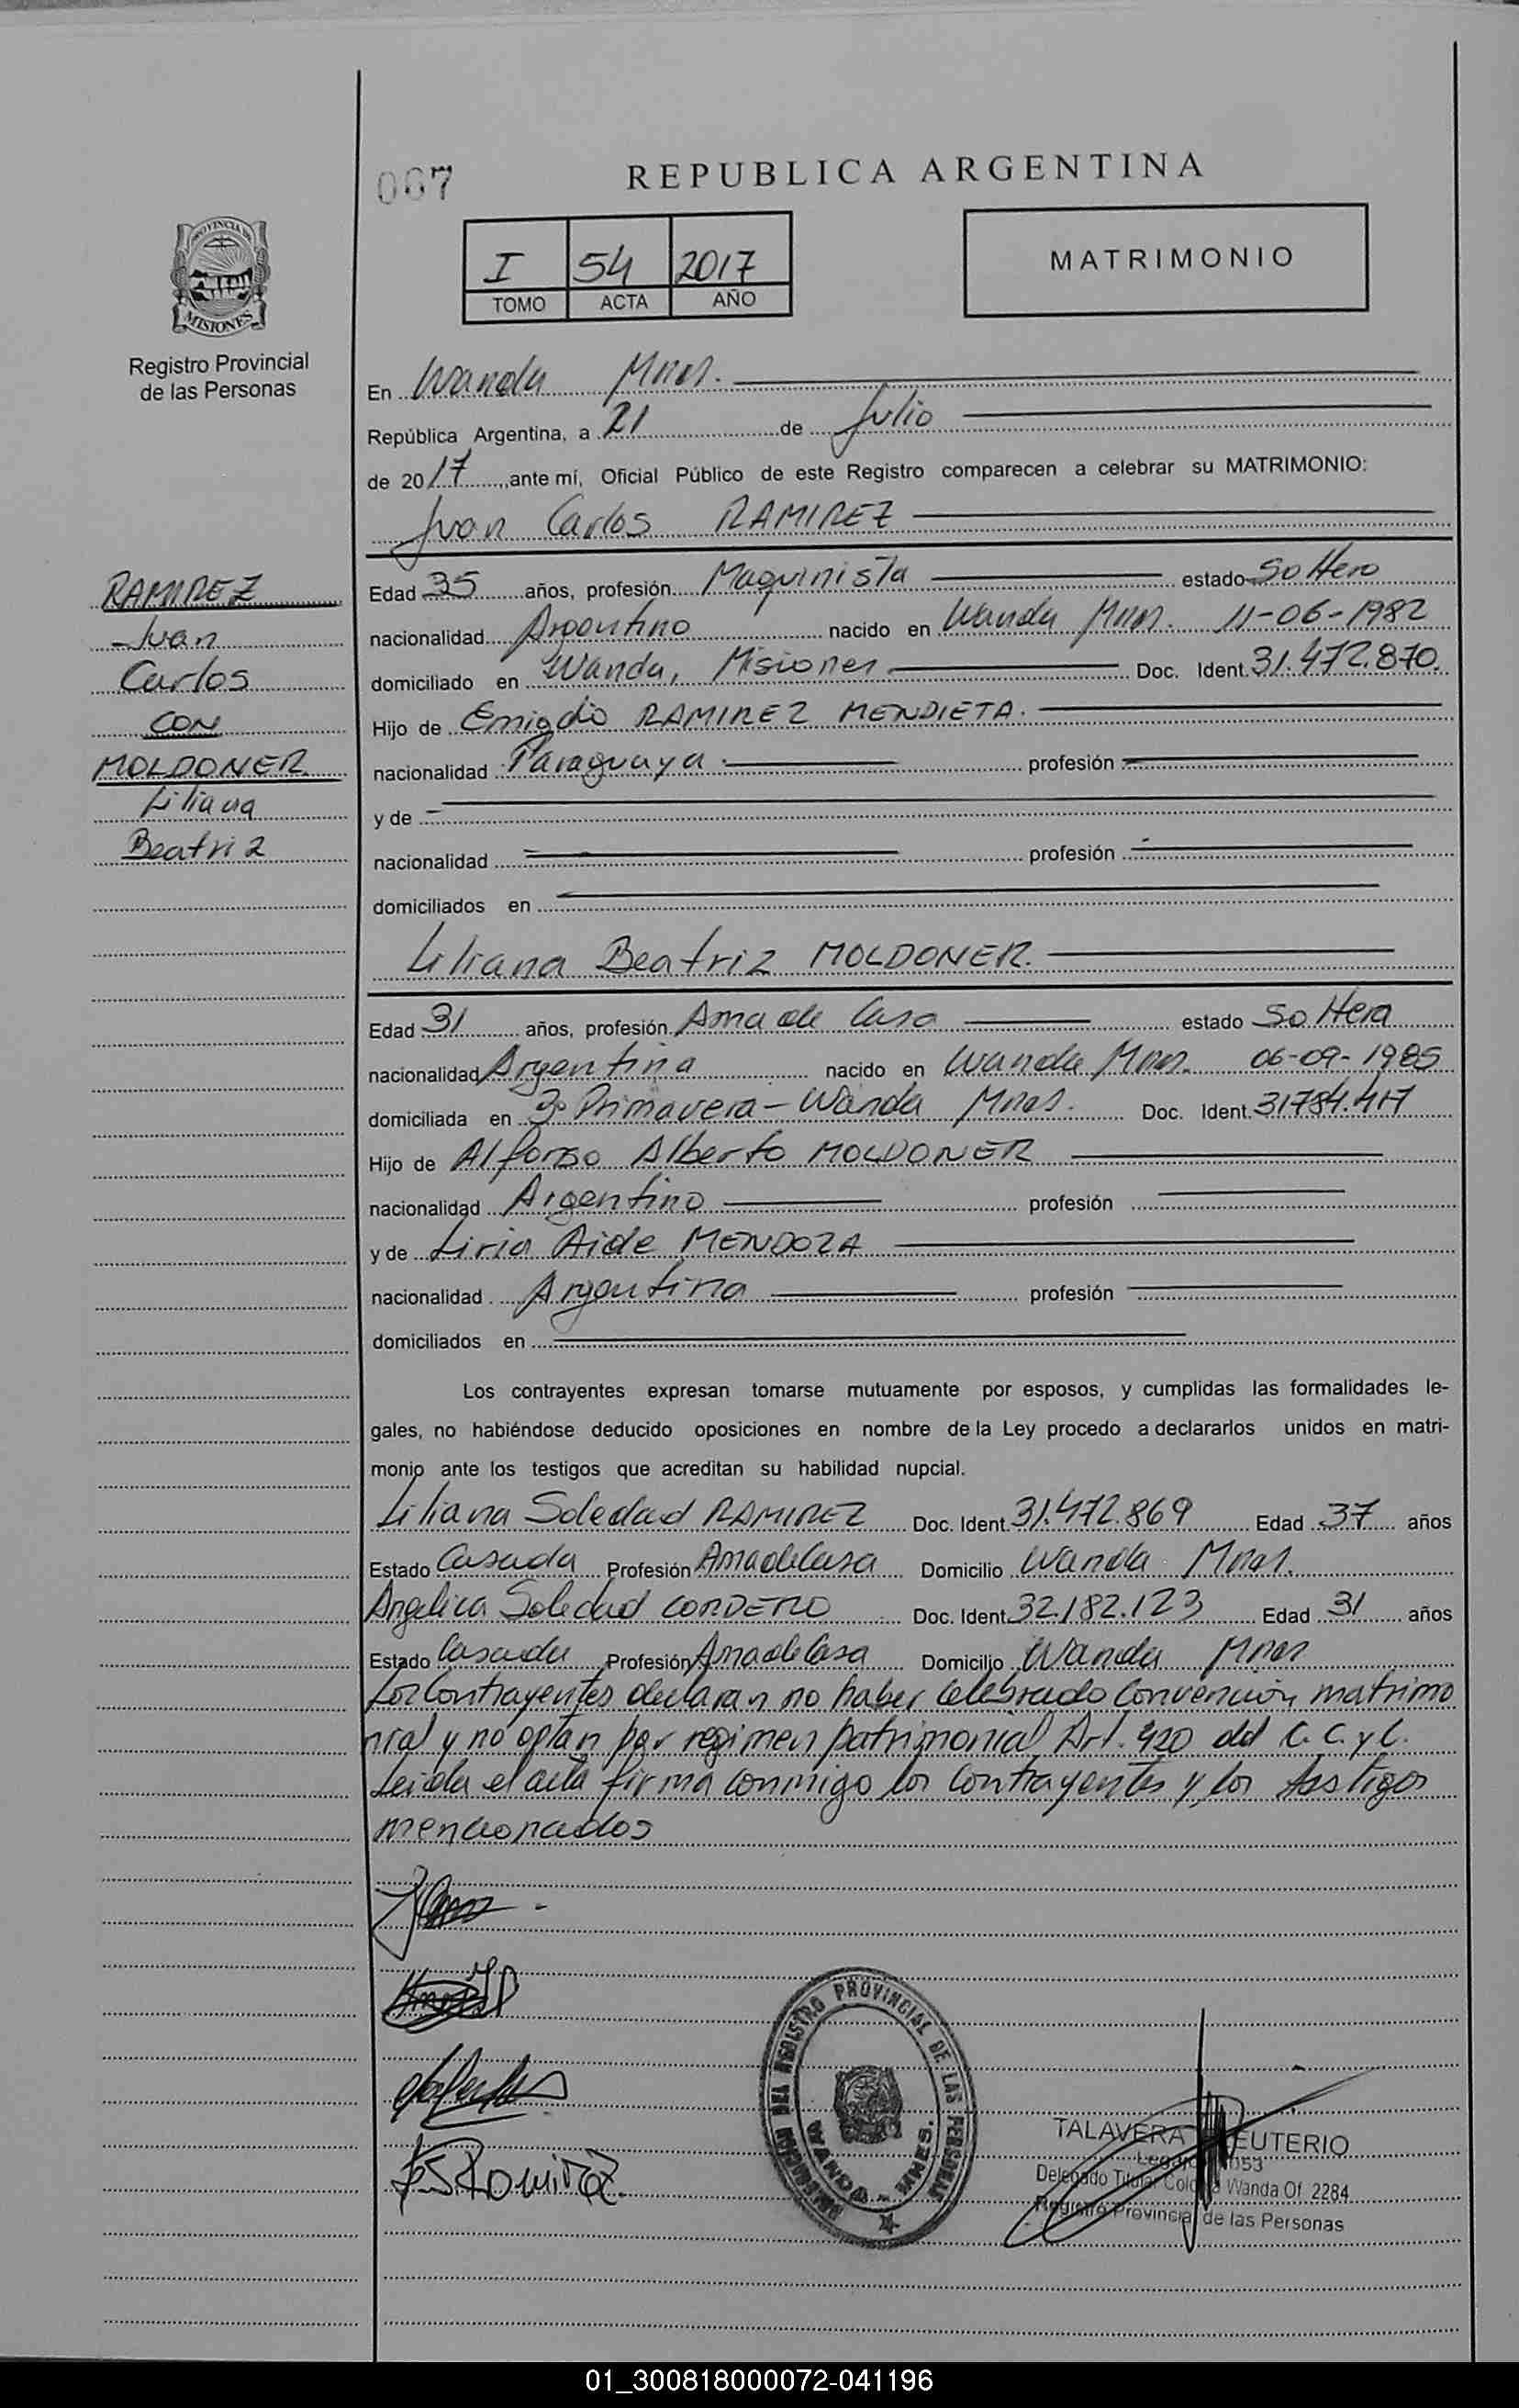 067
REPUBLICA ARGENTINA
PROVINCIA DE
MISIONES
Registro Provincial
de las Personas
I 54 2017
TOMO ACTA AÑO
MATRIMONIO
En Wanda Mnes.
República Argentina, a 21 de Julio
de 2017, ante mí, Oficial Público de este Registro comparecen a celebrar su MATRIMONIO:
Juan Carlos RAMIREZ
RAMIREZ
Juan
Carlos
CON
MOLDONER
Liliana
Beatriz
Edad 35 años, profesión Maquinista estado Soltero
nacionalidad Argentino nacido en Wanda Mnes. 11-06-1982
domiciliado en Wanda, Misiones Doc. Ident. 31.472.870.
Hijo de Emigdio RAMIREZ MENDIETA.
nacionalidad Paraguaya profesión
y de
nacionalidad profesión
domiciliados en
Liliana Beatriz MOLDONER.
Edad 31 años, profesión Ama de Casa estado Soltera
nacionalidad Argentina nacido en Wanda Mnes. 06-09-1985
domiciliada en Bº Primavera - Wanda Mnes. Doc. Ident. 31784.417
Hijo de Alfonso Alberto MOLDONER
nacionalidad Argentino profesión
y de Liria Aide MENDOZA
nacionalidad Argentina profesión
domiciliados en
Los contrayentes expresan tomarse mutuamente por esposos, y cumplidas las formalidades le-
gales, no habiéndose deducido oposiciones en nombre de la Ley procedo a declararlos unidos en matri-
monio ante los testigos que acreditan su habilidad nupcial.
Liliana Soledad RAMIREZ Doc. Ident. 31.472.869 Edad 37 años
Estado Casada Profesión Ama de Casa Domicilio Wanda Mnes.
Angelica Soledad CORDERO Doc. Ident. 32.182.123 Edad 31 años
Estado Casada Profesión Ama de Casa Domicilio Wanda Mnes
Los Contrayentes declaran no haber Celebrado Convención matrimo
nial y no optan por regimen patrimonial Art. 420 del C. C. y C.
Leida el acta firma conmigo los Contrayentes y los testigos
mencionados
DIRECCION DEL REGISTRO PROVINCIAL DE LAS PERSONAS
WANDA - MNES.
TALAVERA EUTERIO
Delegado Titular Colonia Wanda Of. 2284
Registro Provincial de las Personas
01_300818000072-041196